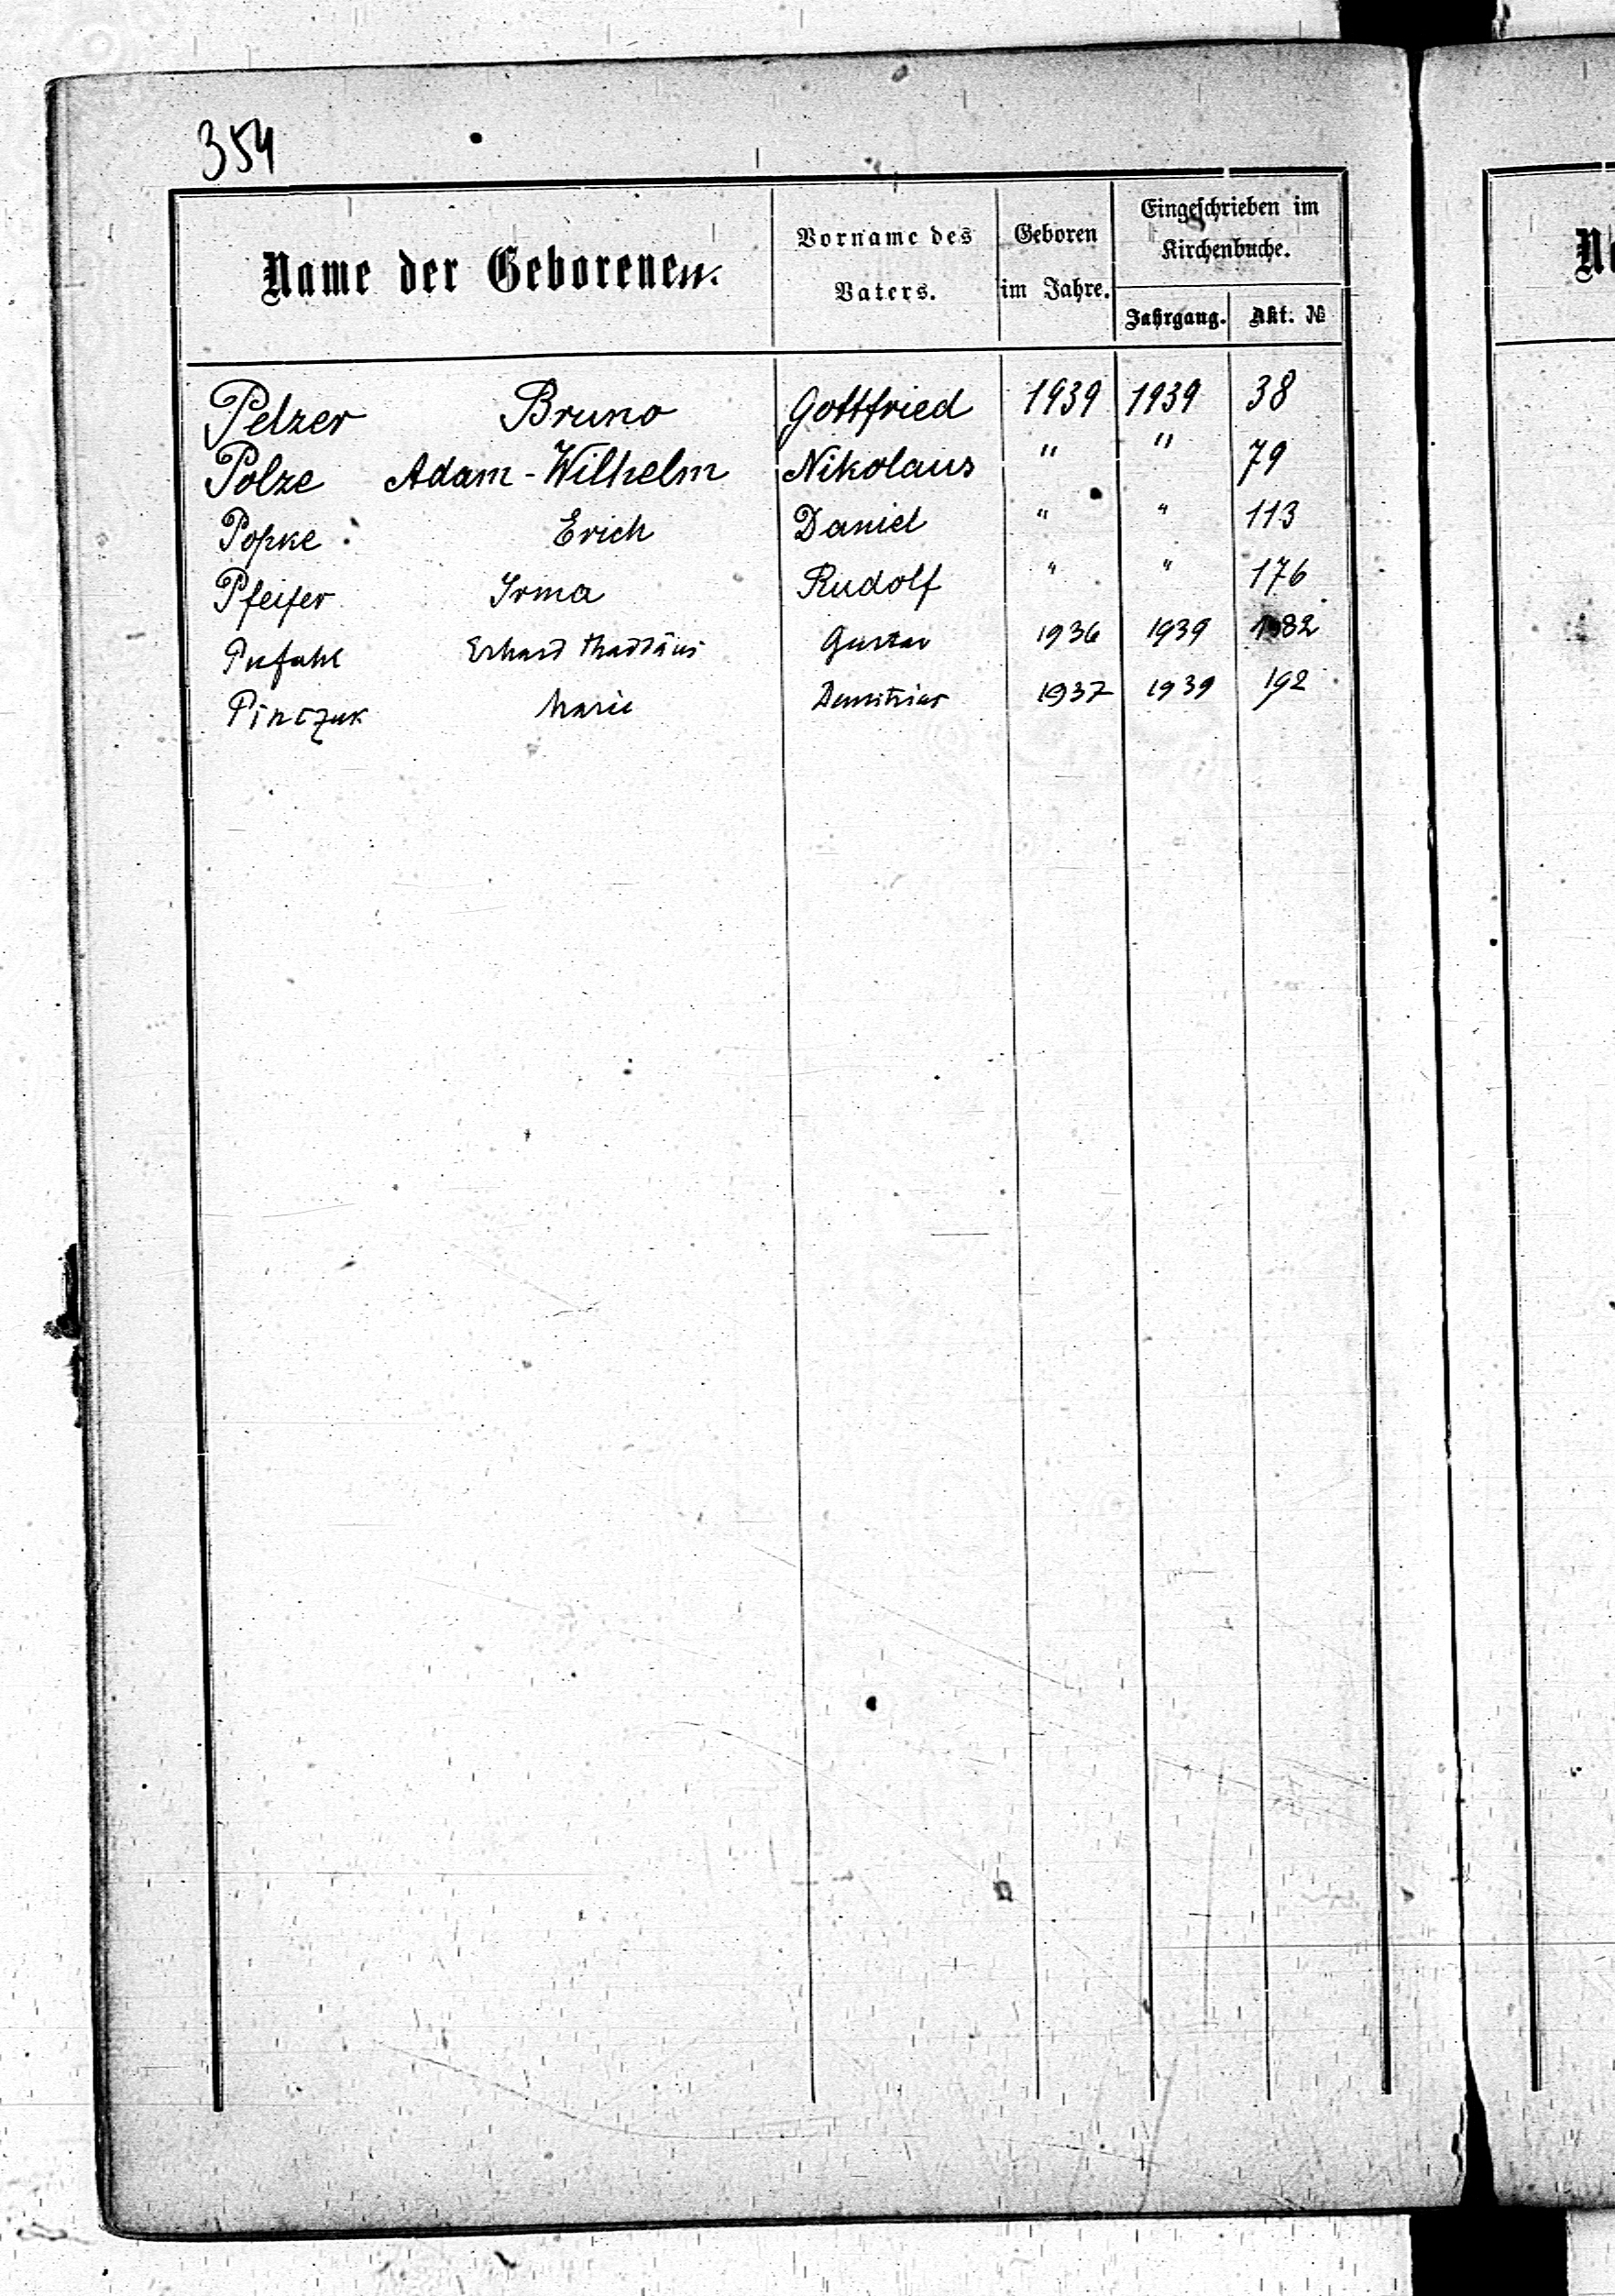 354
Name der Geborenen.
Vorname des
Vaters.
Geboren
im Jahre.
Eingeschrieben im
Kirchenbuche.
Jahrgang. Akt. №
Pelzer Bruno Gottfried 1939 1939 38
Polze Adam-Wilhelm Nikolaus " " 79
Popke Erich Daniel " " 113
Pfeifer Irma Rudolf " " 176
Pufahl Erhard Thaddäus Gustav 1936 1939 182
Pinczuk Marie Demitrius 1937 1939 192